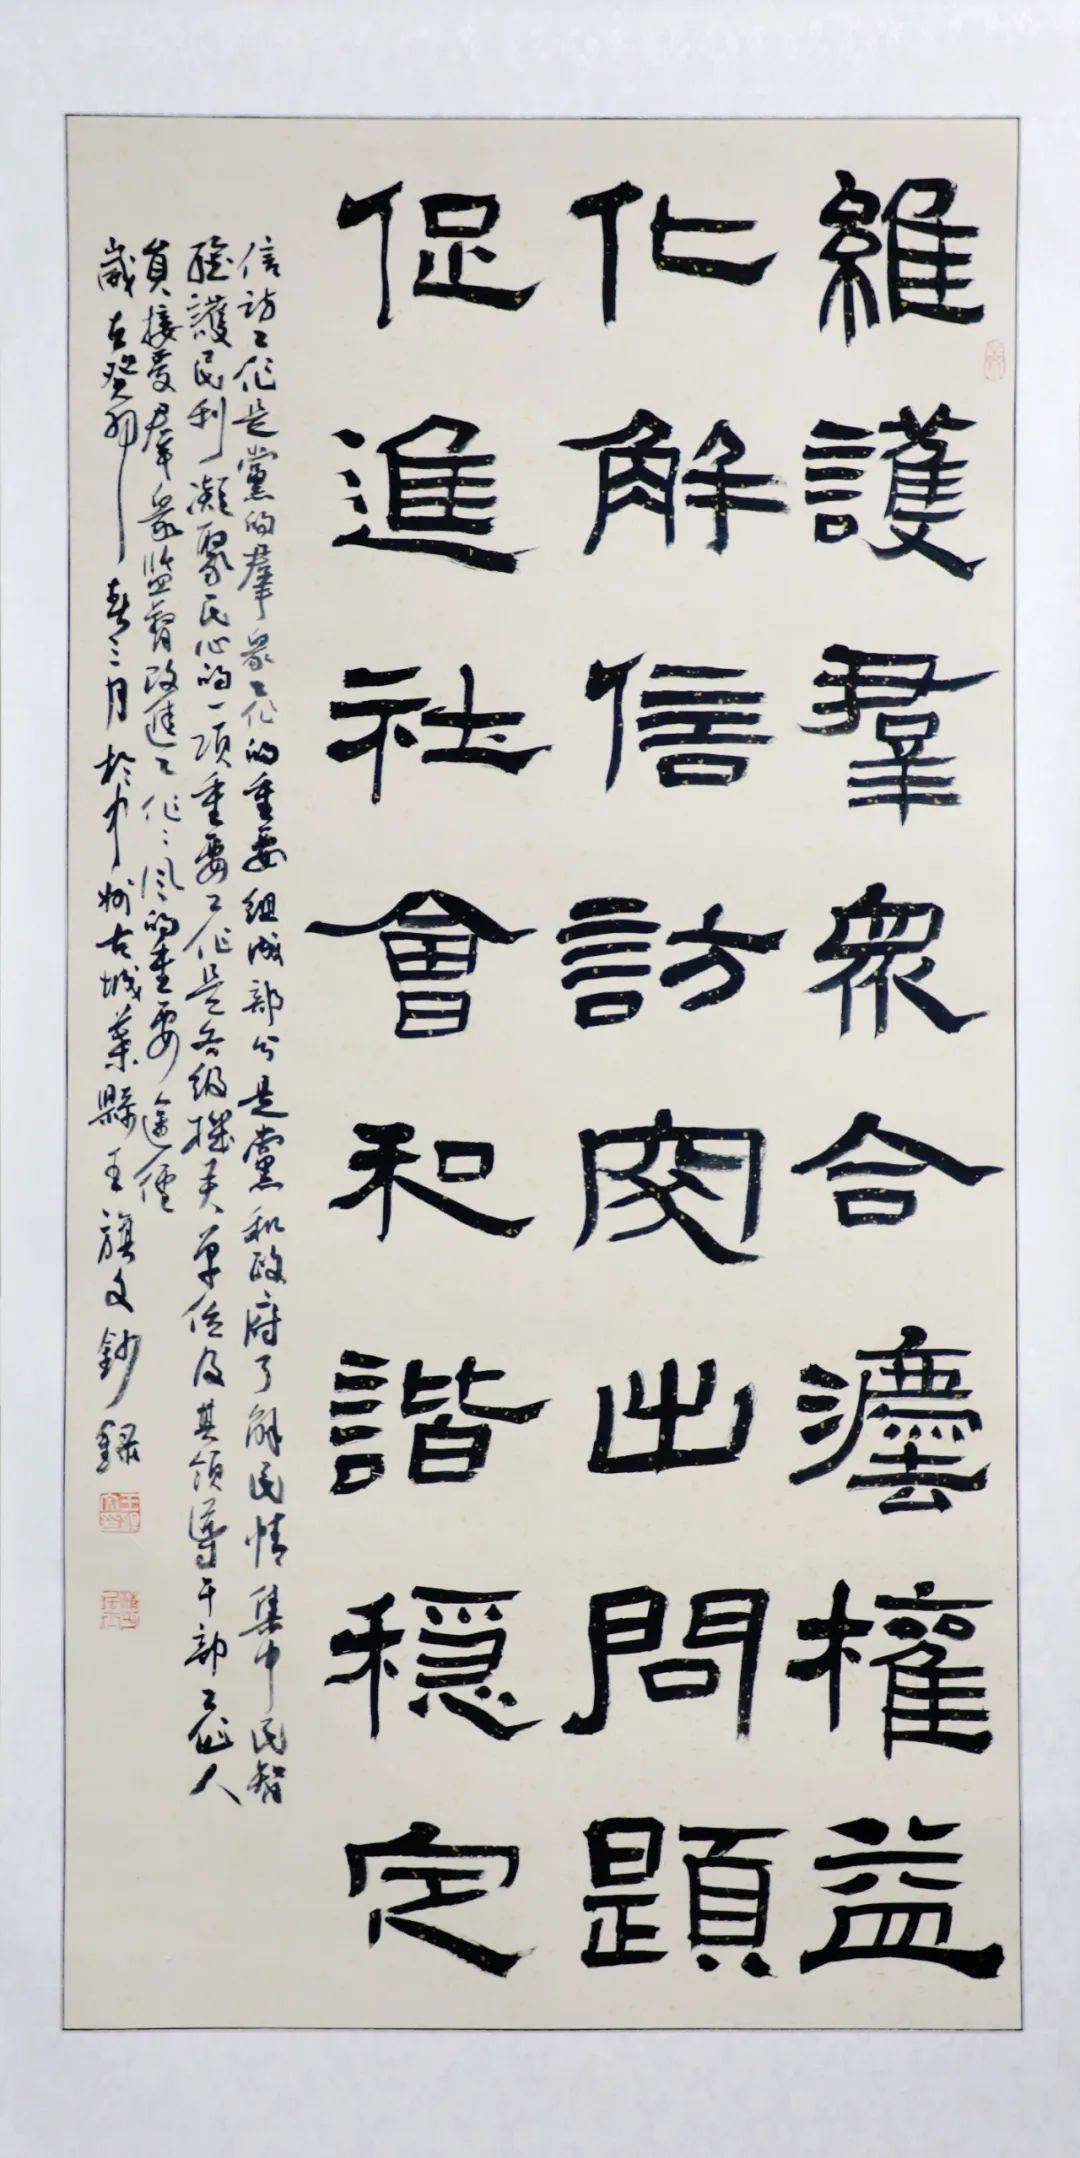 維護羣衆合灋權益
化解信訪突出問題
促進社會和諧穩定
信訪工作是黨的羣衆工作的重要組成部分是黨和政府了解民情集中民智
維護民利凝聚民心的一項重要工作是各級機关單位及其領導干部工作人
員接受羣衆監督改進工作〻風的重要途徑
歲在癸卯春三月於中州古城葉縣王旗文鈔錄